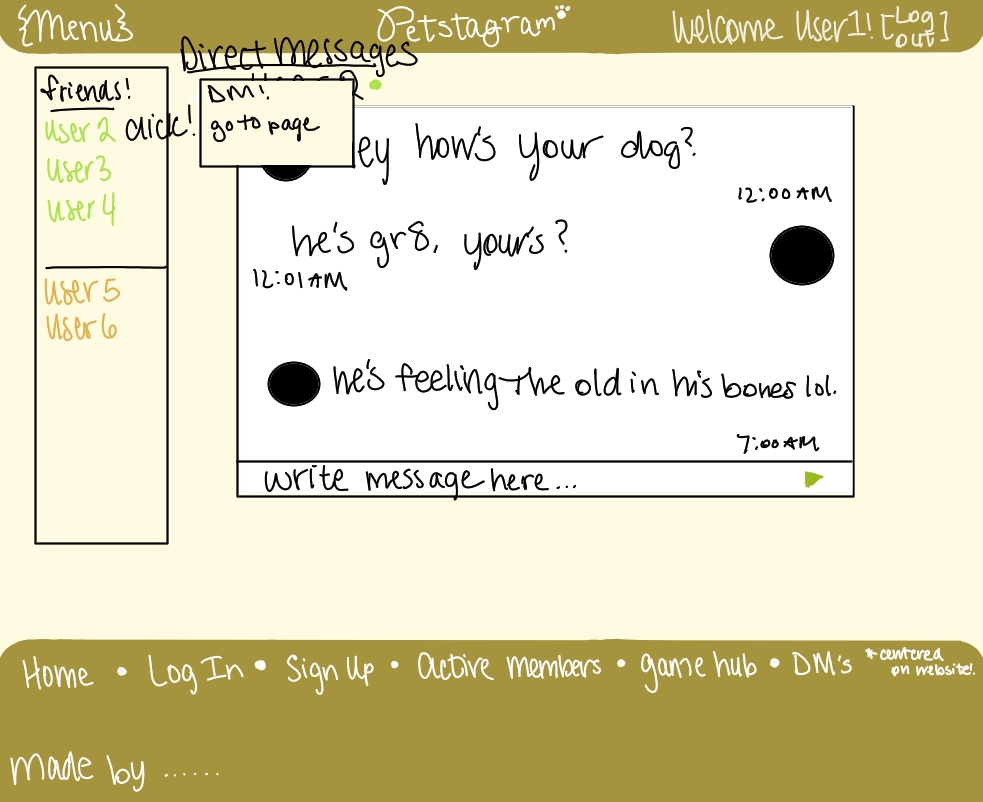 {Menu}
Petstagram
Welcome User1! [Log out]
Direct Messages
friends!
user 2 click!
user3
user 4
user 5
user 6
DM!
go to page
ey how's your dog?
12:00 AM
he's gr8, your's?
12:01 AM
he's feeling the old in his bones lol.
7:00 AM
write message here...
Home • Log In • Sign Up • active members • game hub • DM's
*centered
on website!
made by ......